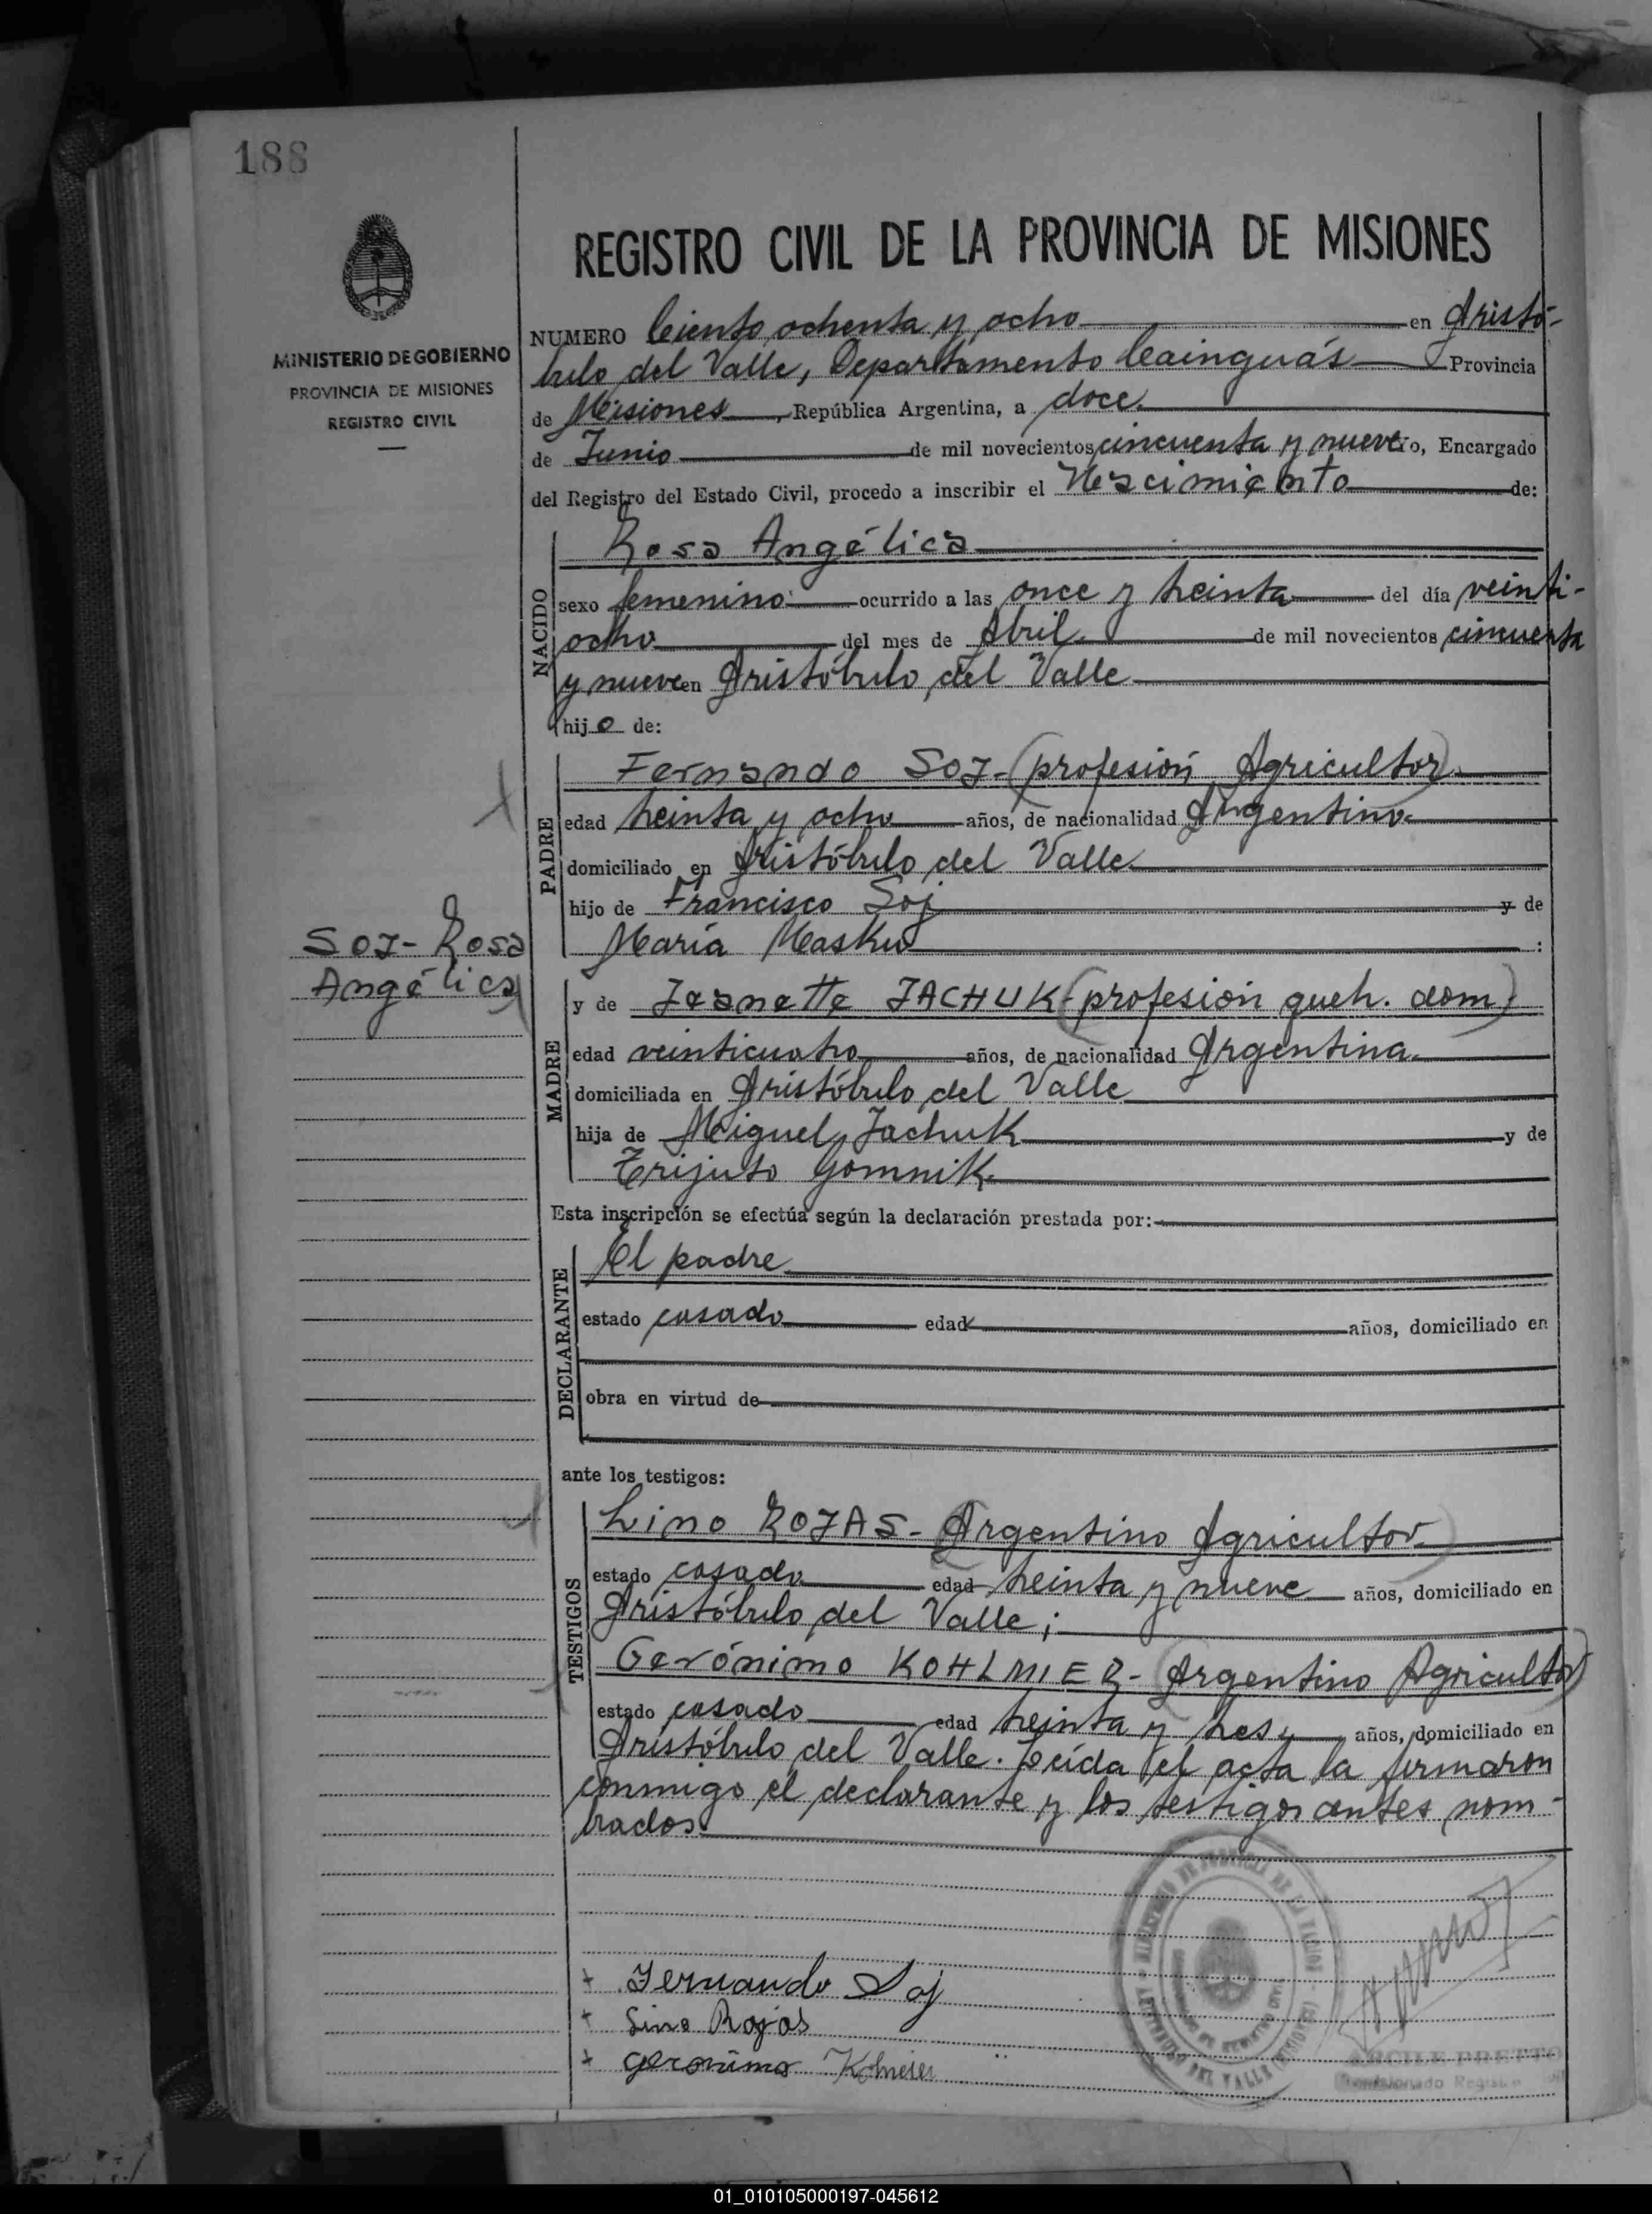 188
MINISTERIO DE GOBIERNO
PROVINCIA DE MISIONES
REGISTRO CIVIL
REGISTRO CIVIL DE LA PROVINCIA DE MISIONES
NUMERO Ciento ochenta y ocho en Aristó-
bulo del Valle, Departamento Cainguás Provincia
de Misiones, República Argentina, a doce
de Junio de mil novecientos cincuenta y nueve yo, Encargado
del Registro del Estado Civil, procedo a inscribir el Nacimiento de:
NACIDO
Rosa Angélica
sexo femenino ocurrido a las once y treinta del día veinti-
ocho del mes de Abril de mil novecientos cincuenta
y nueve en Aristóbulo del Valle
hijo de:
PADRE
Fernando SOJ- (profesión Agricultor)
edad treinta y ocho años, de nacionalidad Argentino
domiciliado en Aristóbulo del Valle
hijo de Francisco Soj y de
María Masku :
SOJ- Rosa
Angélica
MADRE
y de Jeanette JACHUK (profesión queh. dom)
edad veinticuatro años, de nacionalidad Argentina
domiciliada en Aristóbulo del Valle
hija de Miguel Jachuk y de
Gomnik
Esta inscripción se efectúa según la declaración prestada por:
DECLARANTE
El padre
estado casado edad años, domiciliado en
obra en virtud de
ante los testigos:
TESTIGOS
Lino ROJAS- (Argentino Agricultor)
estado casado edad treinta y nueve años, domiciliado en
Aristóbulo del Valle;
Gerónimo KOHLMIER- (Argentino Agricultor)
estado casado edad treinta y tres años, domiciliado en
Aristóbulo del Valle. Leída el acta la firmaron
conmigo el declarante y los testigos antes nom-
brados
+ Fernando Soj
+ Lino Rojas
+ Geronimo
01_010105000197-045612